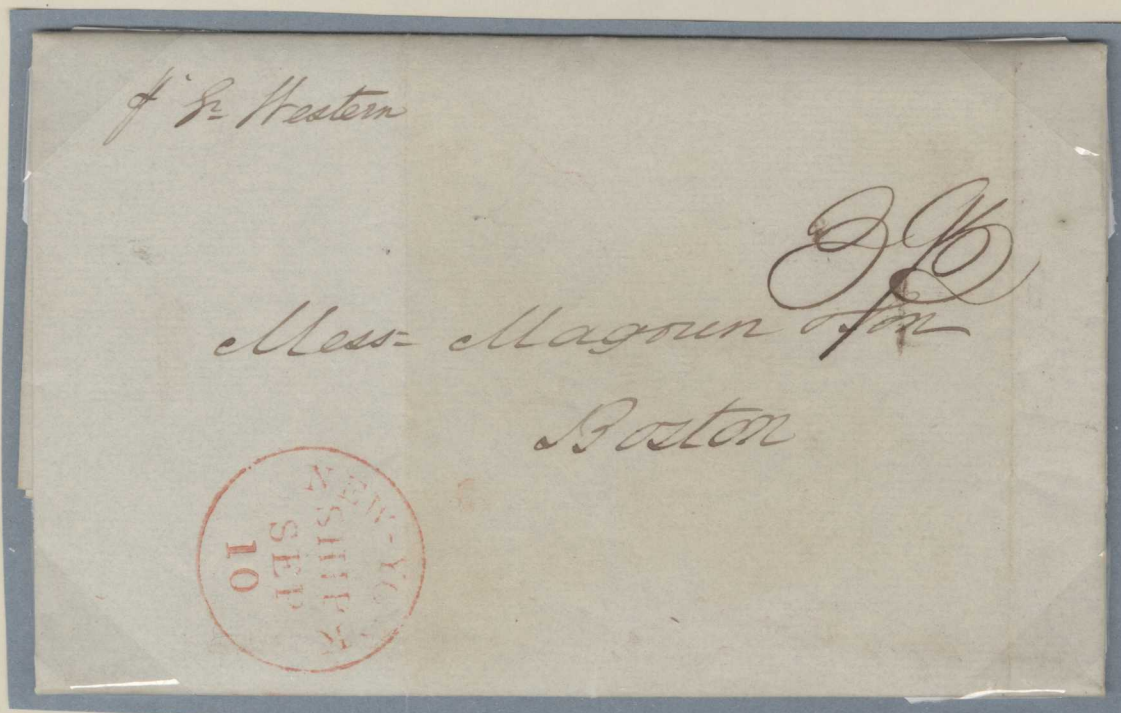 pr Gr Western
Messrs Magoun & Son
Boston
NEW-YORK
SHIP
SEP
10